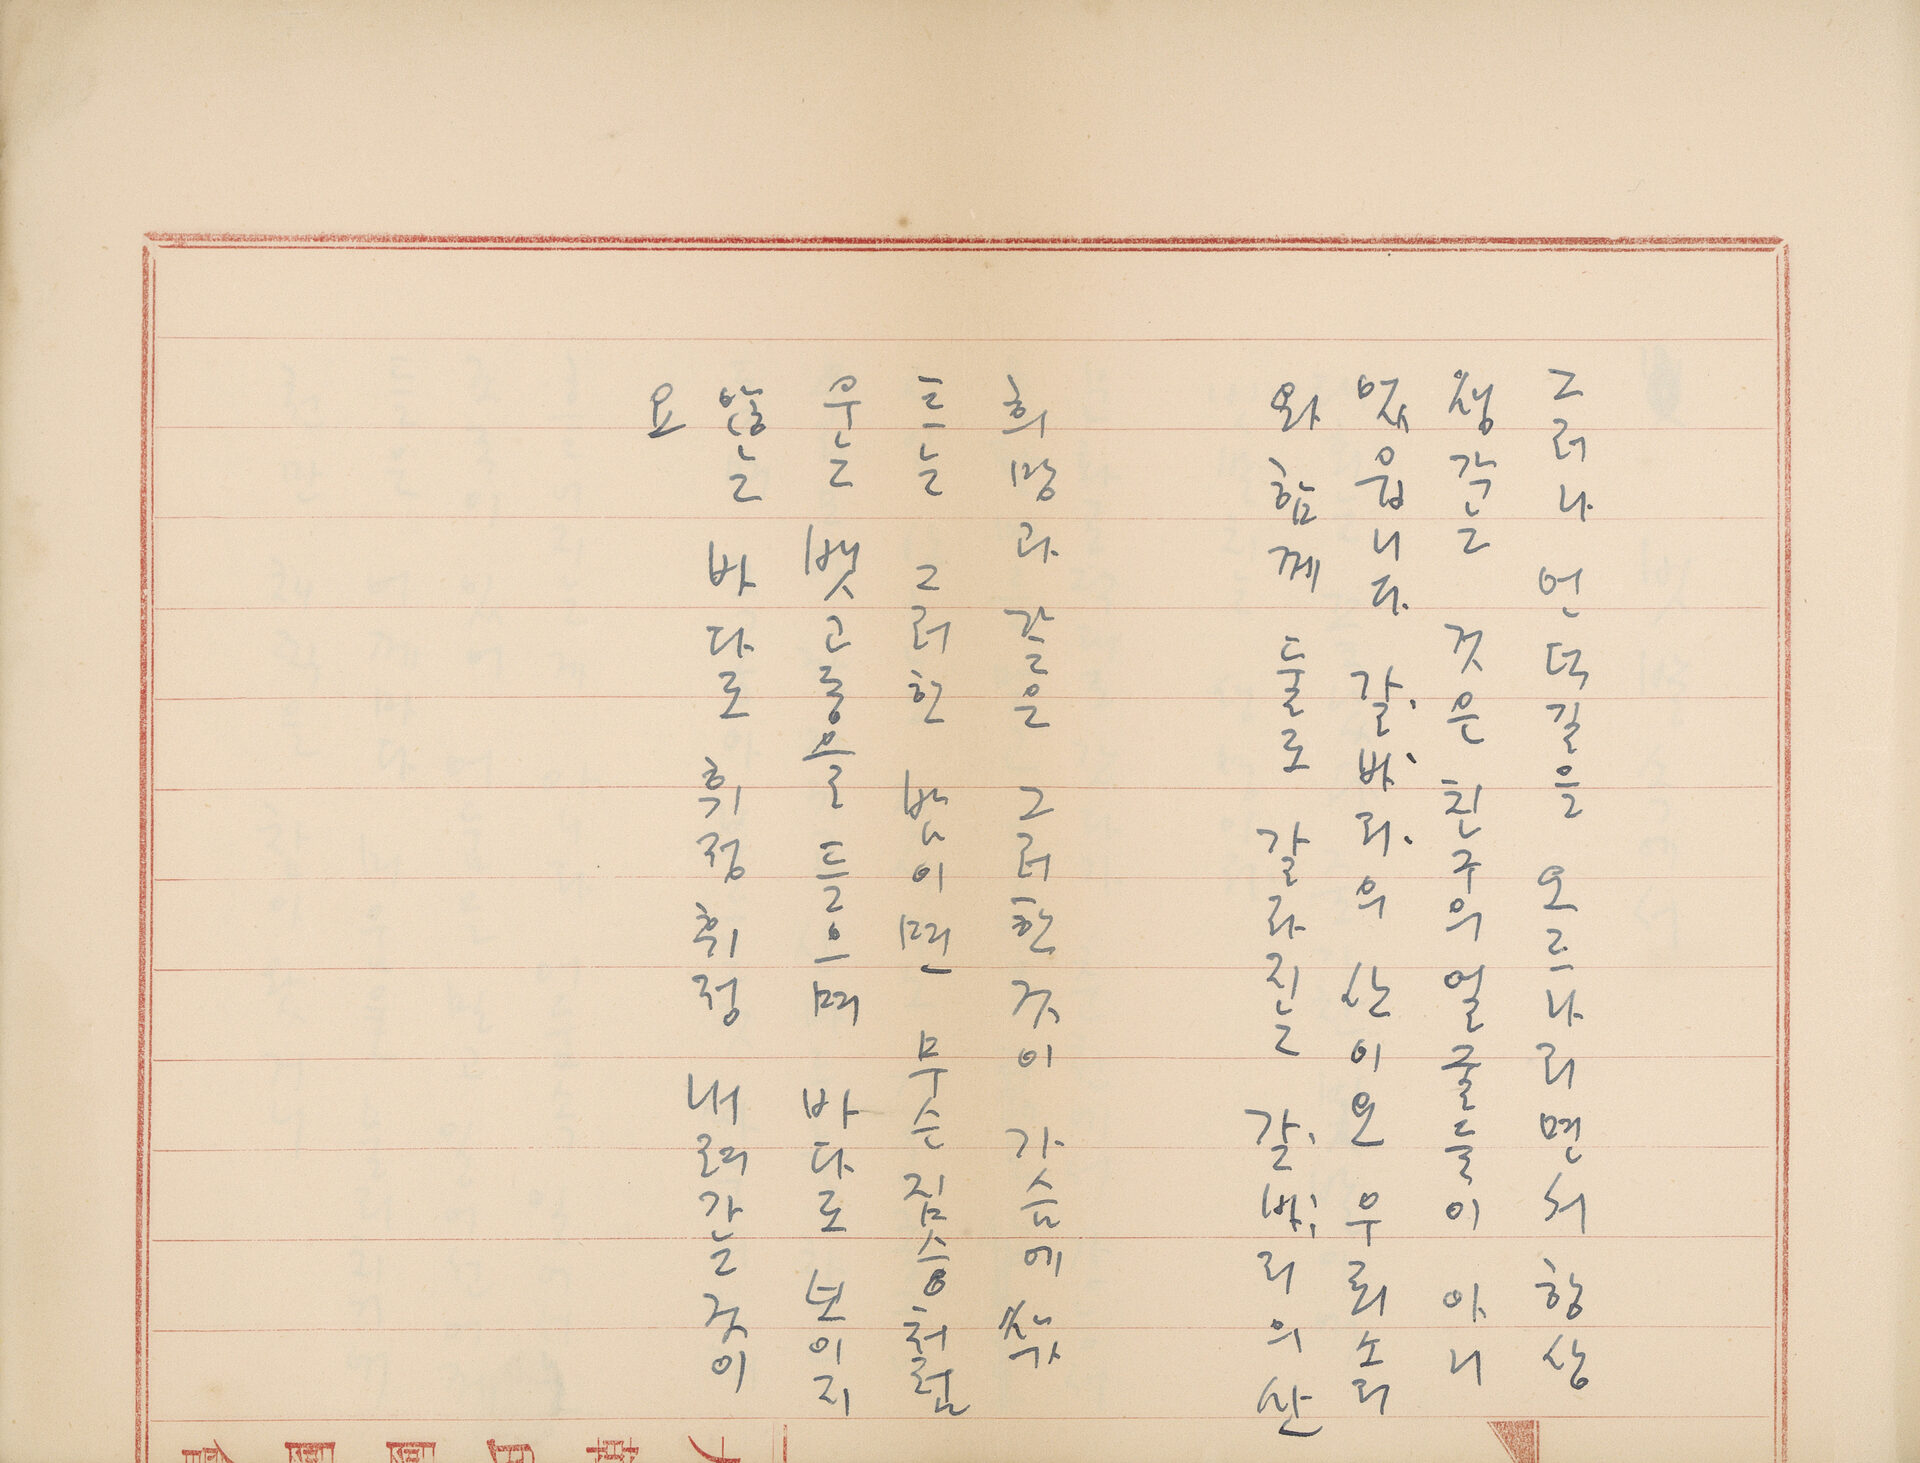 그러나 언덕길을 오르나리면서 항상
생각는 것은 친구의 얼골들이 아니
었읍니다. 갈바리의 산이오 우뢰소리
와 함께 둘로 갈라진는 갈바리의 산
희망과 같은 그러한 것이 가슴에 싹
트는 그러한 밤이면 무슨 짐승처럼
우는 뱃고동을 들으며 바다로 보이지
않는 바다로 휘정휘정 내려가는것이
요